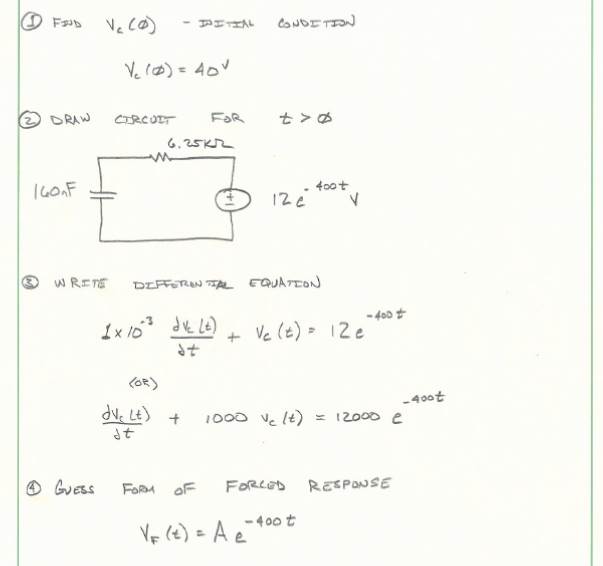 ① FIND Vc(∅) - INITIAL CONDITION
Vc(∅) = 40V
② DRAW CIRCUIT FOR t > ∅
6.25KΩ
160nF
+
-
12e^-400t V
③ WRITE DIFFERENTIAL EQUATION
1×10^-3 dVc(t)/dt + Vc(t) = 12e^-400t
(OR)
dVc(t)/dt + 1000 Vc(t) = 12000 e^-400t
④ GUESS FORM OF FORCED RESPONSE
VF(t) = A e^-400t